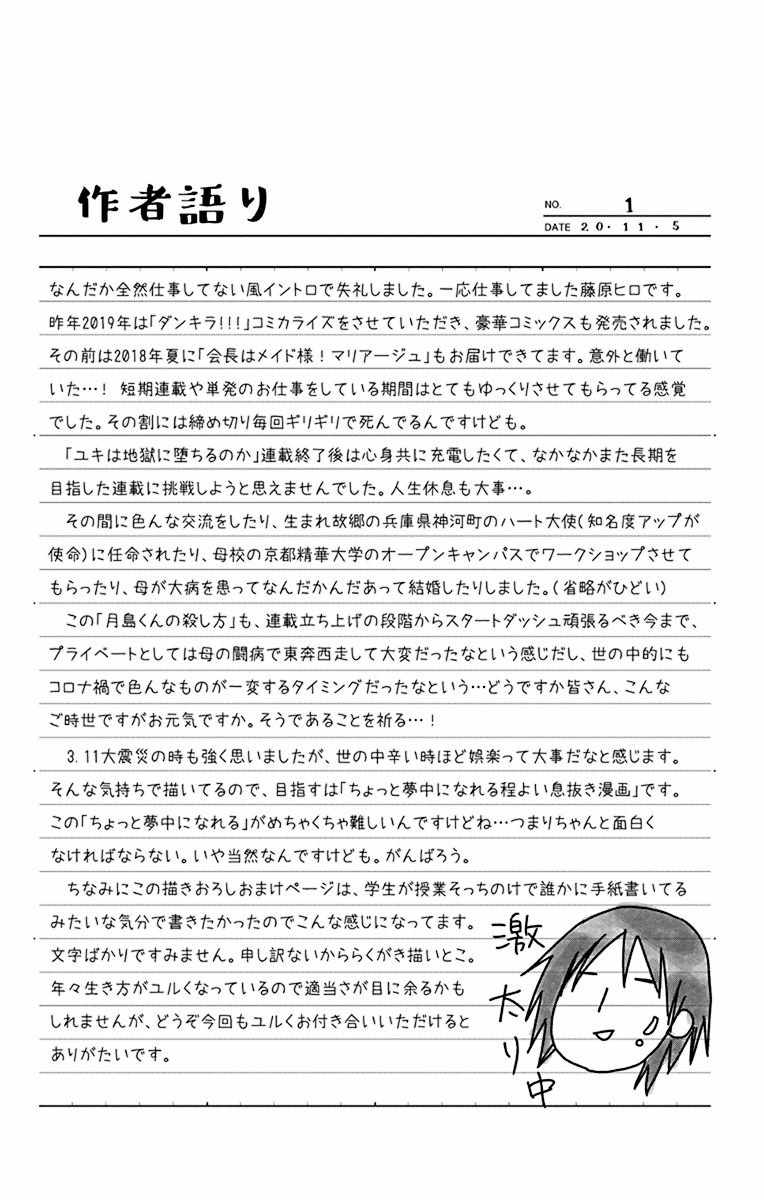 作者語り
NO. 1
DATE 20・11・5
なんだか全然仕事してない風イントロで失礼しました。一応仕事してました藤原ヒロです。
昨年2019年は「ダンキラ!!!」コミカライズをさせていただき、豪華コミックスも発売されました。
その前は2018年夏に「会長はメイド様!マリアージュ」もお届けできてます。意外と働いて
いた…! 短期連載や単発のお仕事をしている期間はとてもゆっくりさせてもらってる感覚
でした。その割には締め切り毎回ギリギリで死んでるんですけども。
「ユキは地獄に堕ちるのか」連載終了後は心身共に充電したくて、なかなかまた長期を
目指した連載に挑戦しようと思えませんでした。人生休息も大事…。
その間に色んな交流をしたり、生まれ故郷の兵庫県神河町のハート大使(知名度アップが
使命)に任命されたり、母校の京都精華大学のオープンキャンパスでワークショップさせて
もらったり、母が大病を患ってなんだかんだあって結婚したりしました。(省略がひどい)
この「月島くんの殺し方」も、連載立ち上げの段階からスタートダッシュ頑張るべき今まで、
プライベートとしては母の闘病で東奔西走して大変だったなという感じだし、世の中的にも
コロナ禍で色んなものが一変するタイミングだったなという…どうですか皆さん、こんな
ご時世ですがお元気ですか。そうであることを祈る…!
3.11大震災の時も強く思いましたが、世の中辛い時ほど娯楽って大事だなと感じます。
そんな気持ちで描いてるので、目指すは「ちょっと夢中になれる程よい息抜き漫画」です。
この「ちょっと夢中になれる」がめちゃくちゃ難しいんですけどね…つまりちゃんと面白く
なければならない。いや当然なんですけども。がんばろう。
ちなみにこの描きおろしおまけページは、学生が授業そっちのけで誰かに手紙書いてる
みたいな気分で書きたかったのでこんな感じになってます。
文字ばかりですみません。申し訳ないかららくがき描いとこ。
年々生き方がユルくなっているので適当さが目に余るかも
しれませんが、どうぞ今回もユルくお付き合いいただけると
ありがたいです。
激太り中